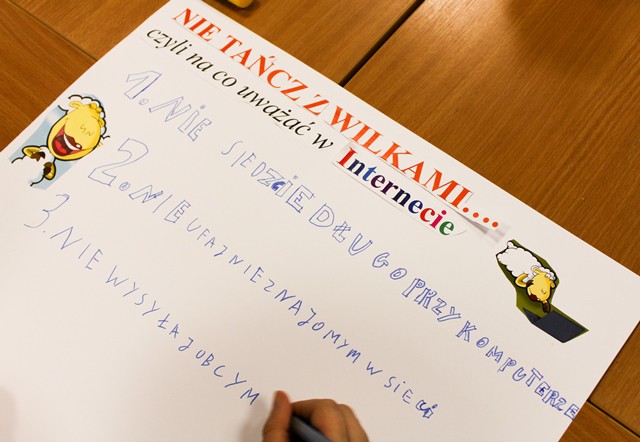 NIE TAŃCZ Z WILKAMI....
czyli na co uważać w Internecie
1. NIE SIEDZIE DŁUGO PRZY KOMPUTERZE
2. NIE UFAJ NIEZNAJOMYM W SIECI
3. NIE WYSYŁAJ OBCYM